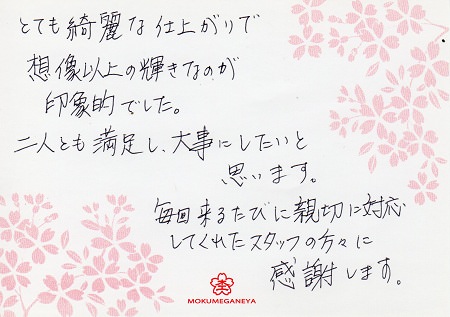 とても綺麗な仕上がりで
想像以上の輝きなのが
印象的でした。
二人とも満足し、大事にしたいと
思います。
毎回来るたびに親切に対応
してくれたスタッフの方々に
感謝します。
MOKUMEGANEYA